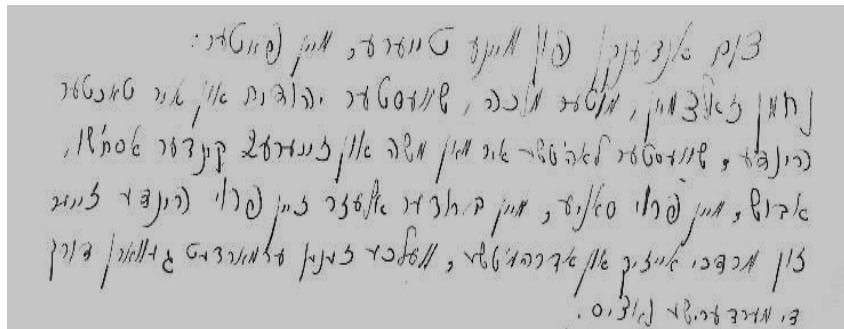 צום אנדענקן פון מיינע טייערע, מיין פאטער:
נחמן זאלצמיין, מוטער מלכה, שוועסטער יהודית און איר טאכטער
הינדע, שוועסטער לאה'טשע איר מאן משה און זייערע 2 קינדער אסתר'שו,
אבוש, מיין פרוי סאניע, מיין ברודער אלעזר זיין פרוי הינדע זייער
זון מרדכי אייזיק און אברהמ'טשע, וועלכע זענען ערמארדעט געווארן דורך
די מערדערישע נאציס.